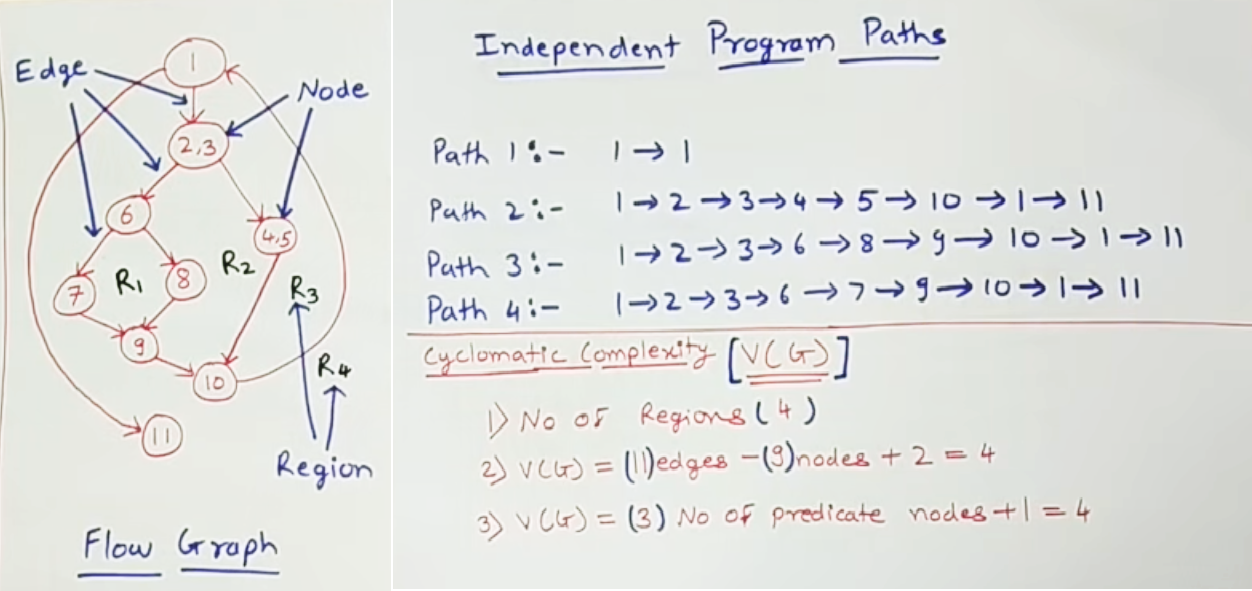 Edge
1
Node
2,3
6
4,5
7
R1
8
R2
R3
9
10
R4
11
Region
Flow Graph
Independent Program Paths
Path 1:- 1 → 1
Path 2:- 1 → 2 → 3 → 4 → 5 → 10 → 1 → 11
Path 3:- 1 → 2 → 3 → 6 → 8 → 9 → 10 → 1 → 11
Path 4:- 1 → 2 → 3 → 6 → 7 → 9 → 10 → 1 → 11
Cyclomatic Complexity [V(G)]
1) No of Regions (4)
2) V(G) = (11)edges - (9)nodes + 2 = 4
3) V(G) = (3) No of predicate nodes + 1 = 4